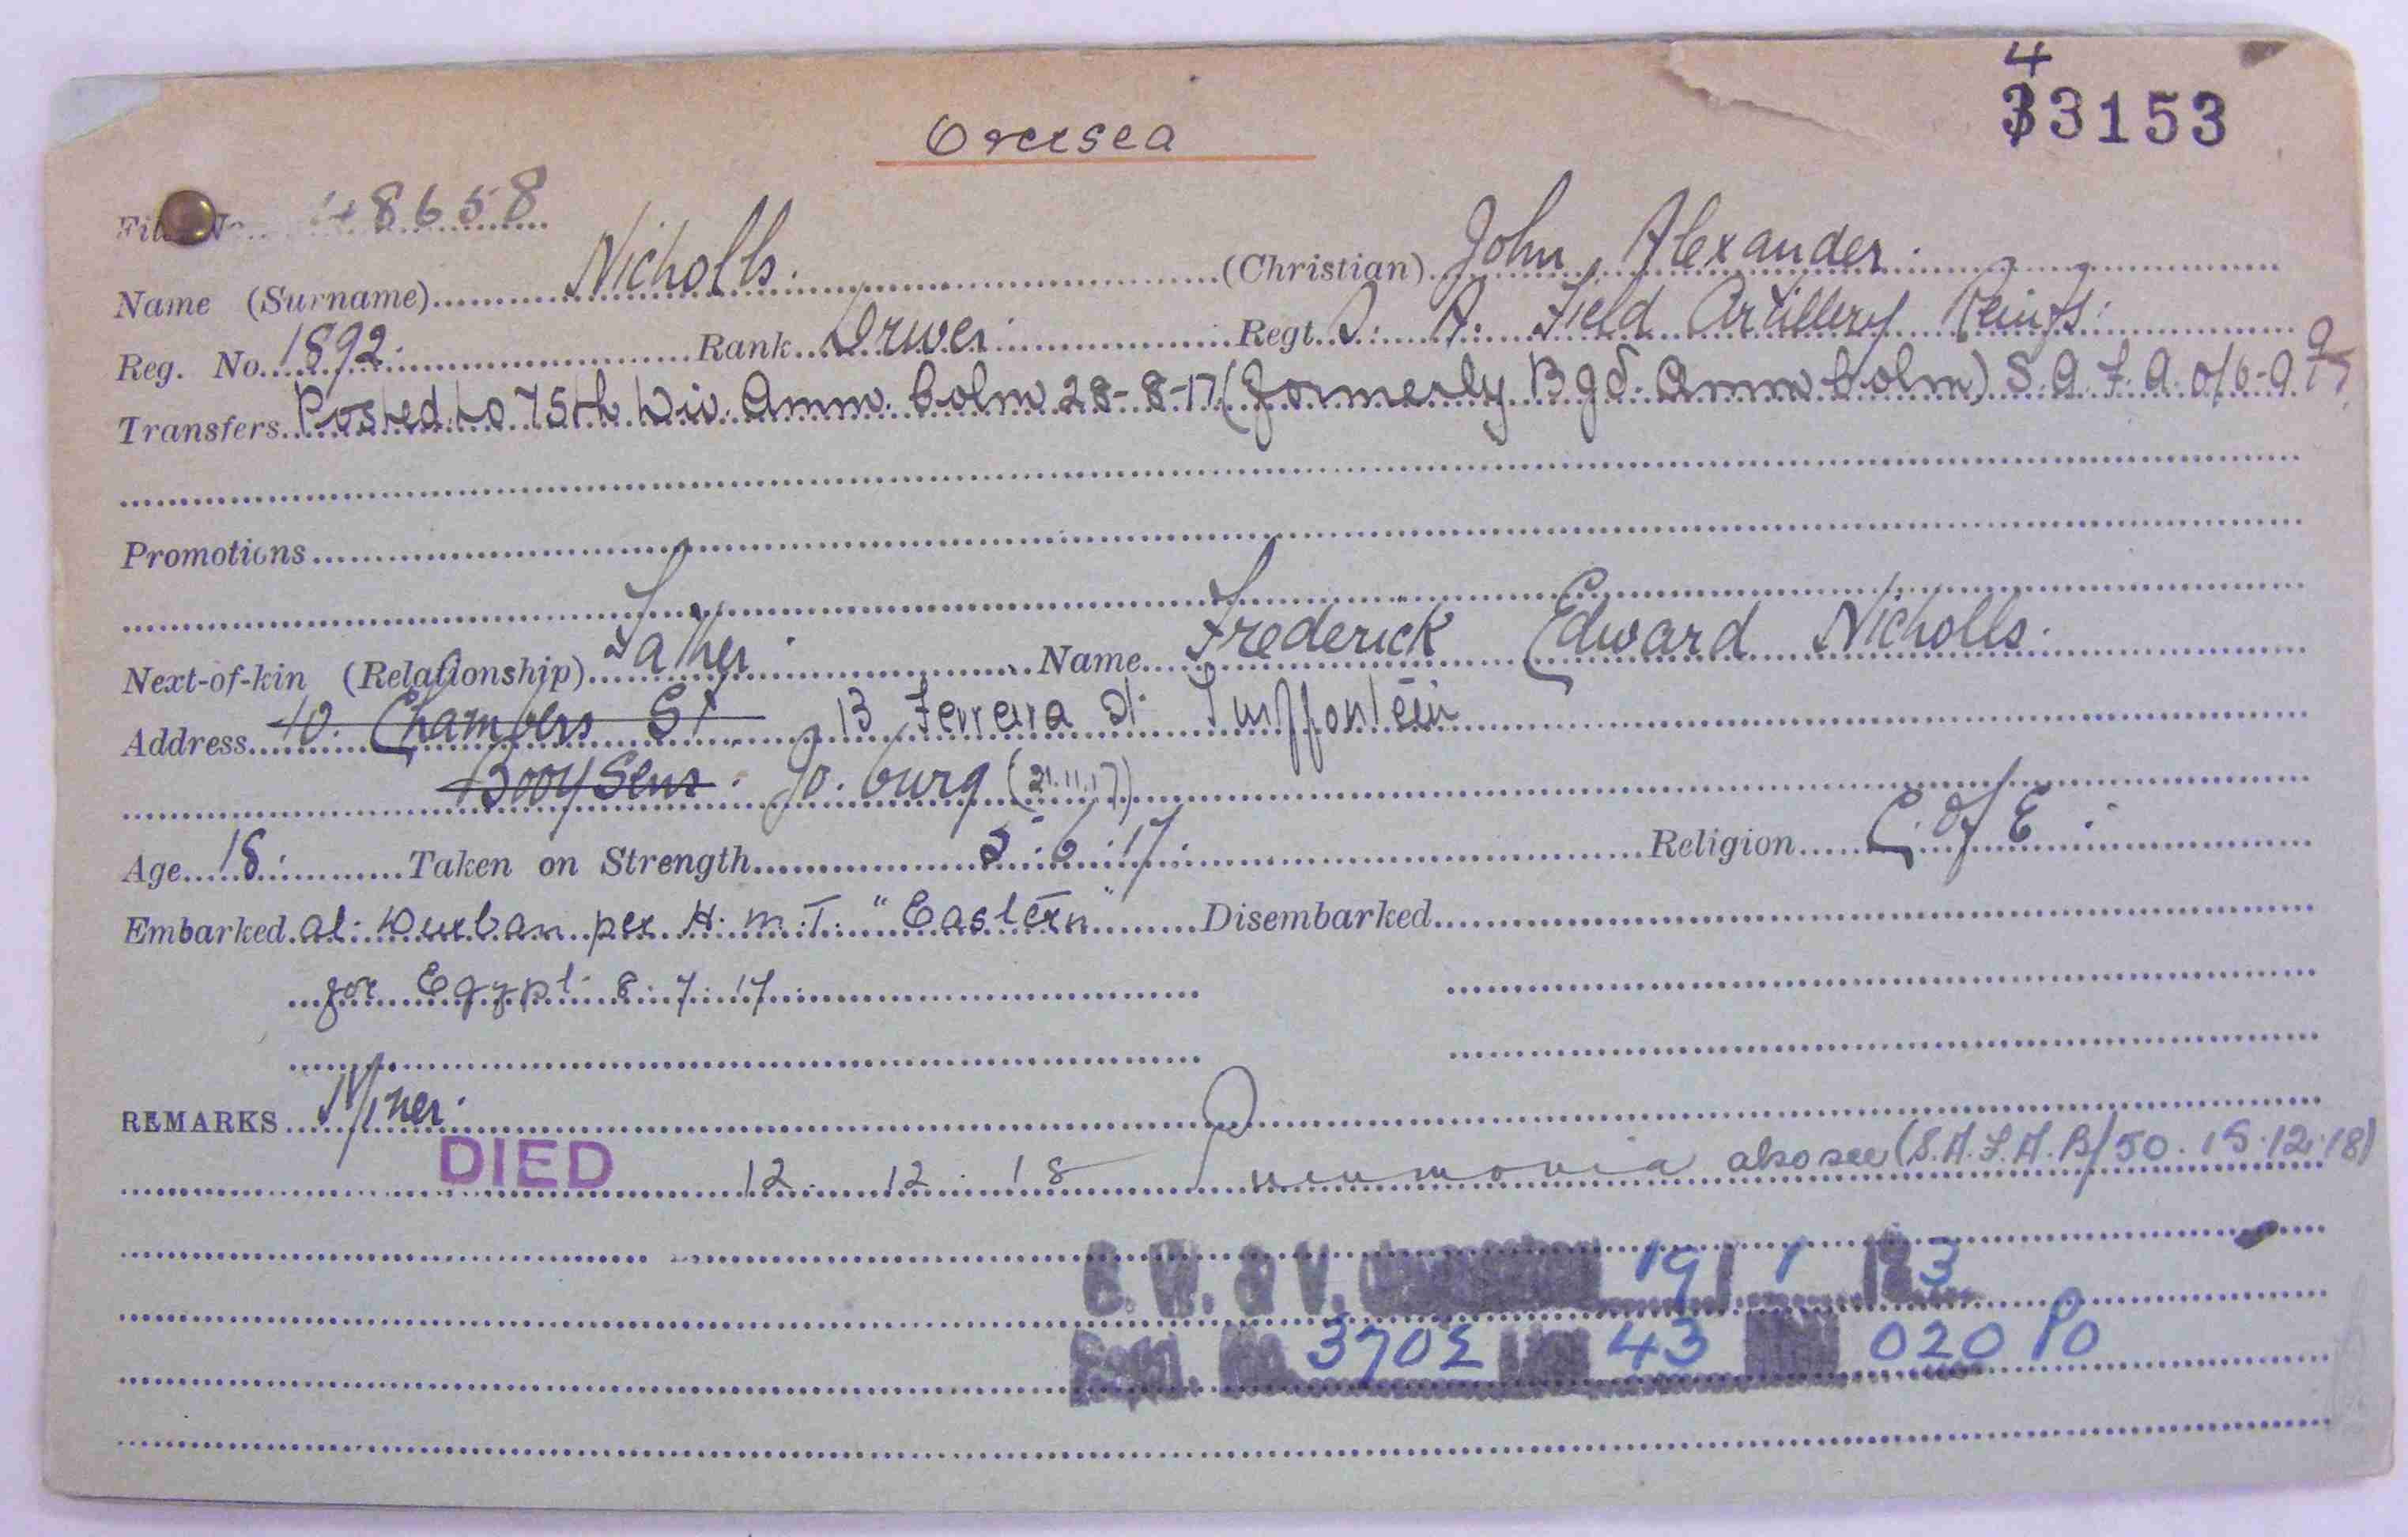 4
33153
Oversea
File No. 48658
Name (Surname) Nicholls. (Christian) John Alexander.
Reg. No. 1892. Rank Driver. Regt. S. A. Field Artillery Reinfts.
Transfers Posted to 75th Div. Amm. Colm 28-8-17 (formerly Bgd. Amm Colm) S.A.F.A. 0/6-9.
Promotions
Next-of-kin (Relationship) Father. Name Frederick Edward Nicholls.
Address 40. Chambers St 13 Ferreira St Turffontein
Booysens. Jo.burg (21.11.17)
Age 18. Taken on Strength 5.6.17. Religion C. of E.
Embarked at Durban per H.M.T. "Eastern" Disembarked
for Egypt 8.7.17.
REMARKS Miner.
DIED 12. 12. 18 Pneumonia also see (S.A.F.A. B/50. 15.12.18)
B. W. & V. 19 1 23
3702 43 020 Po